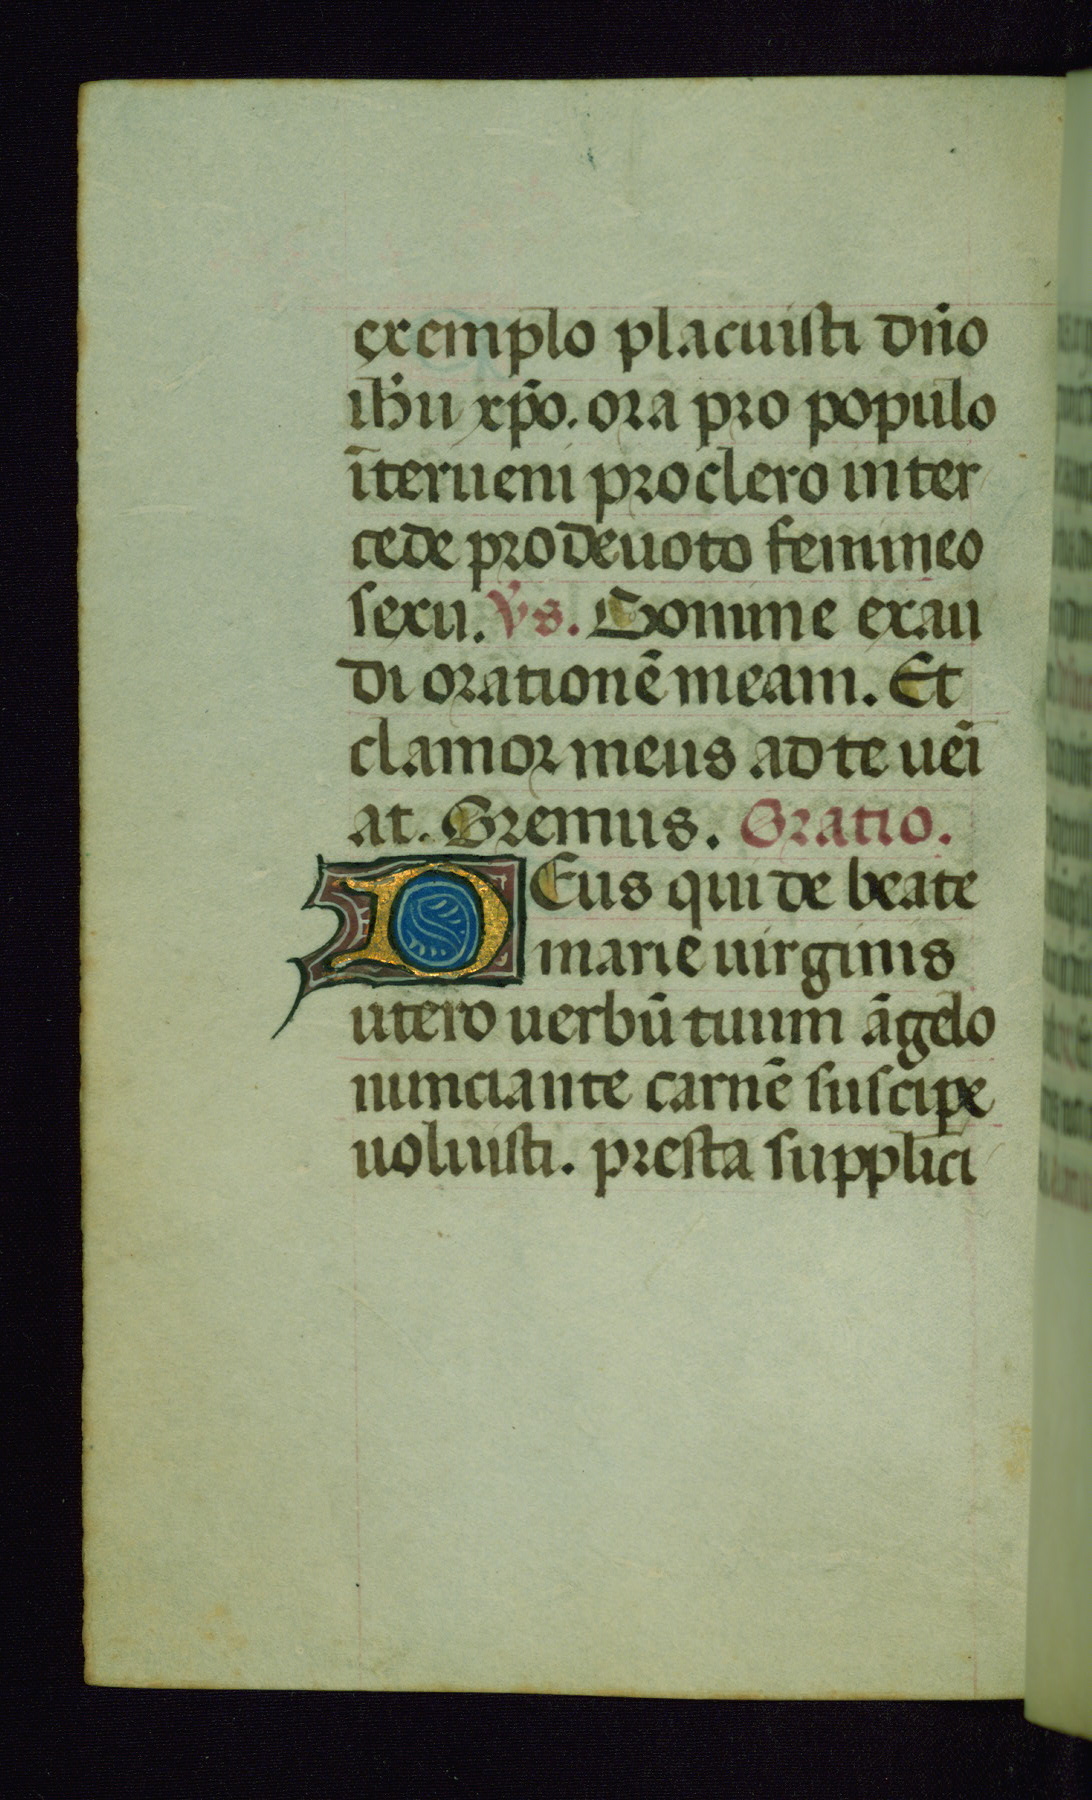 exemplo placuisti dn̄o
ihū xp̄o. ora pro populo
īterueni pro clero inter
cede pro deuoto femineo
sexu. v̄s. Domine exau
di orationē meam. Et
clamor meus ad te uēi
at. Oremus. Oratio.
DEus qui de beate
marie uirginis
utero uerbū tuum āgelo
nunciante carnē suscipe
uoluisti. presta supplici